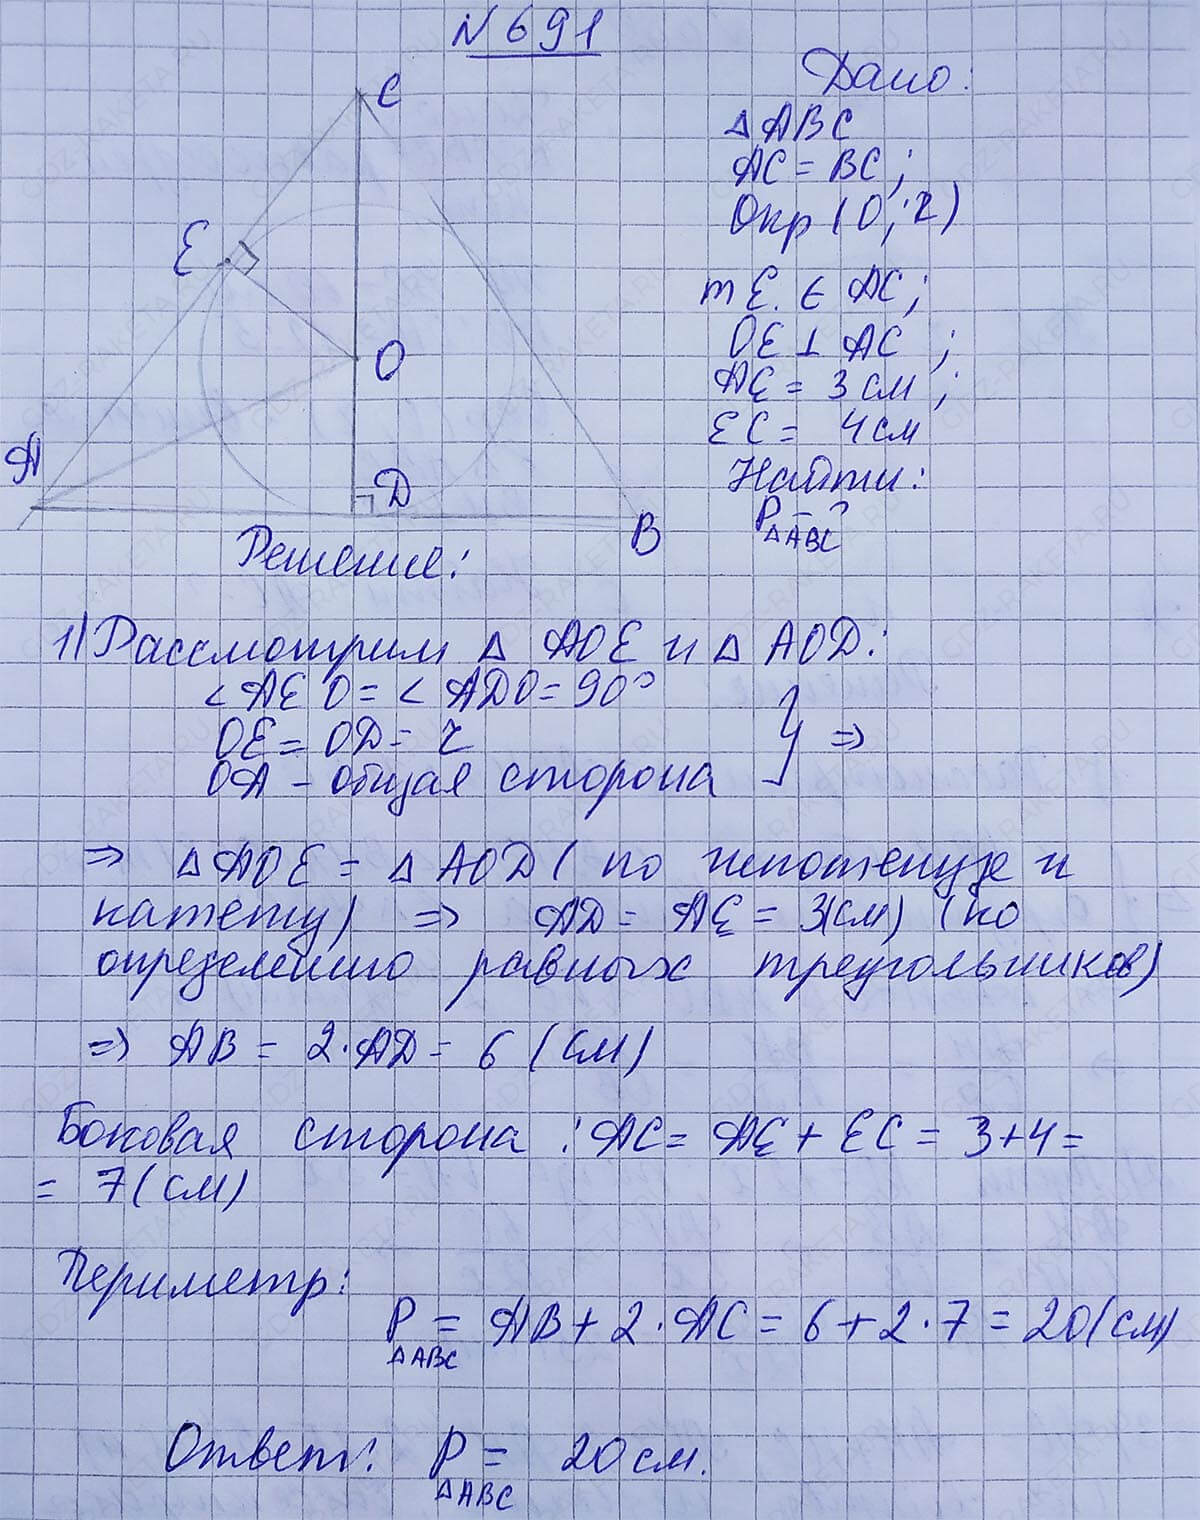 N 691
C
E
O
A
D
B
Дано:
△ABC
AC = BC;
Окр (O; r)
т E ∈ AC;
OE ⊥ AC;
AE = 3 см;
EC = 4 см
Найти:
P△ABC - ?
Решение:
1) Рассмотрим △ AOE и △ AOD:
∠AEO = ∠ADO = 90°
OE = OD = r
OA - общая сторона } =>
=> △AOE = △AOD (по гипотенузе и
катету) => AD = AE = 3(см) (по
определению равных треугольников)
=> AB = 2·AD = 6 (см)
Боковая сторона: AC = AE + EC = 3+4 =
= 7 (см)
Периметр:
P△ABC = AB + 2·AC = 6+2·7 = 20(см)
Ответ: P△ABC = 20 см.